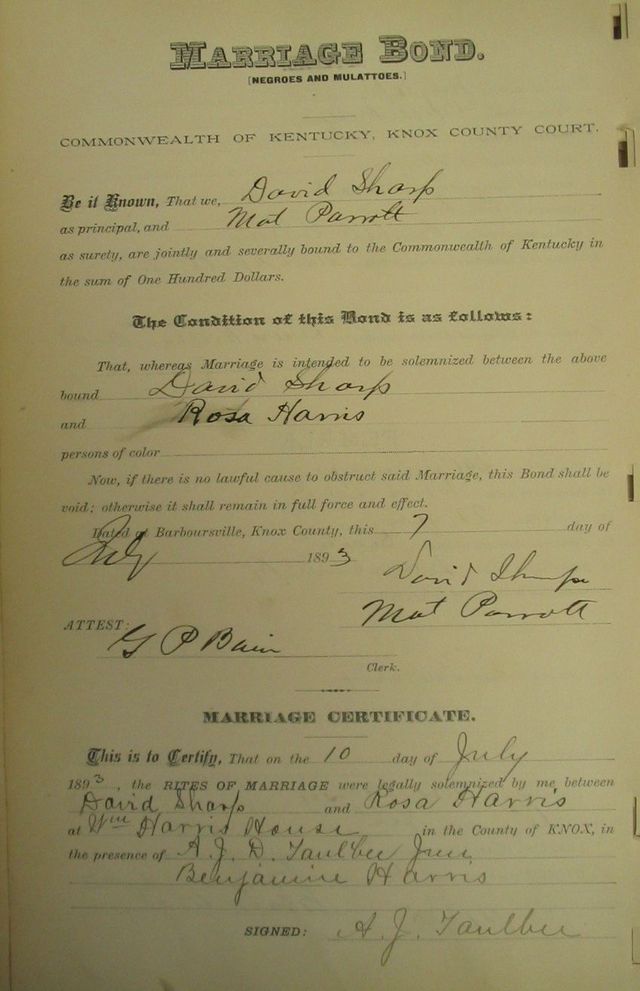 MARRIAGE BOND.
[NEGROES AND MULATTOES.]
COMMONWEALTH OF KENTUCKY, KNOX COUNTY COURT.
Be it Known, That we, David Sharp
as principal, and Mat Parrott
as surety, are jointly and severally bound to the Commonwealth of Kentucky in
the sum of One Hundred Dollars.
The Condition of this Bond is as follows:
That, whereas Marriage is intended to be solemnized between the above
bound David Sharp
and Rosa Harris
persons of color
Now, if there is no lawful cause to obstruct said Marriage, this Bond shall be
void; otherwise it shall remain in full force and effect.
Dated at Barboursville, Knox County, this 7 day of
July 1893
David Sharp
Mat Parrott
ATTEST:
G P Bain
Clerk.
MARRIAGE CERTIFICATE.
This is to Certify, That on the 10 day of July
1893, the RITES OF MARRIAGE were legally solemnized by me between
David Sharp and Rosa Harris
at Wm Harris House in the County of KNOX, in
the presence of A. J. D. Taulbee Jun.
Benjamine Harris
SIGNED: A. J. Taulbee